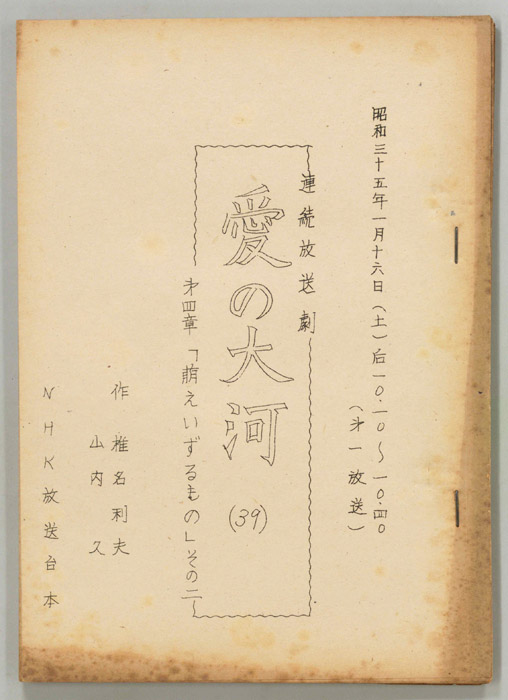 昭和三十五年一月十六日(土)后一〇.一〇~一〇.四〇
(才一放送)
連続放送劇
愛の大河
(39)
才四章「萠えいずるもの」その二
作 椎名利夫
山内 久
NHK放送台本